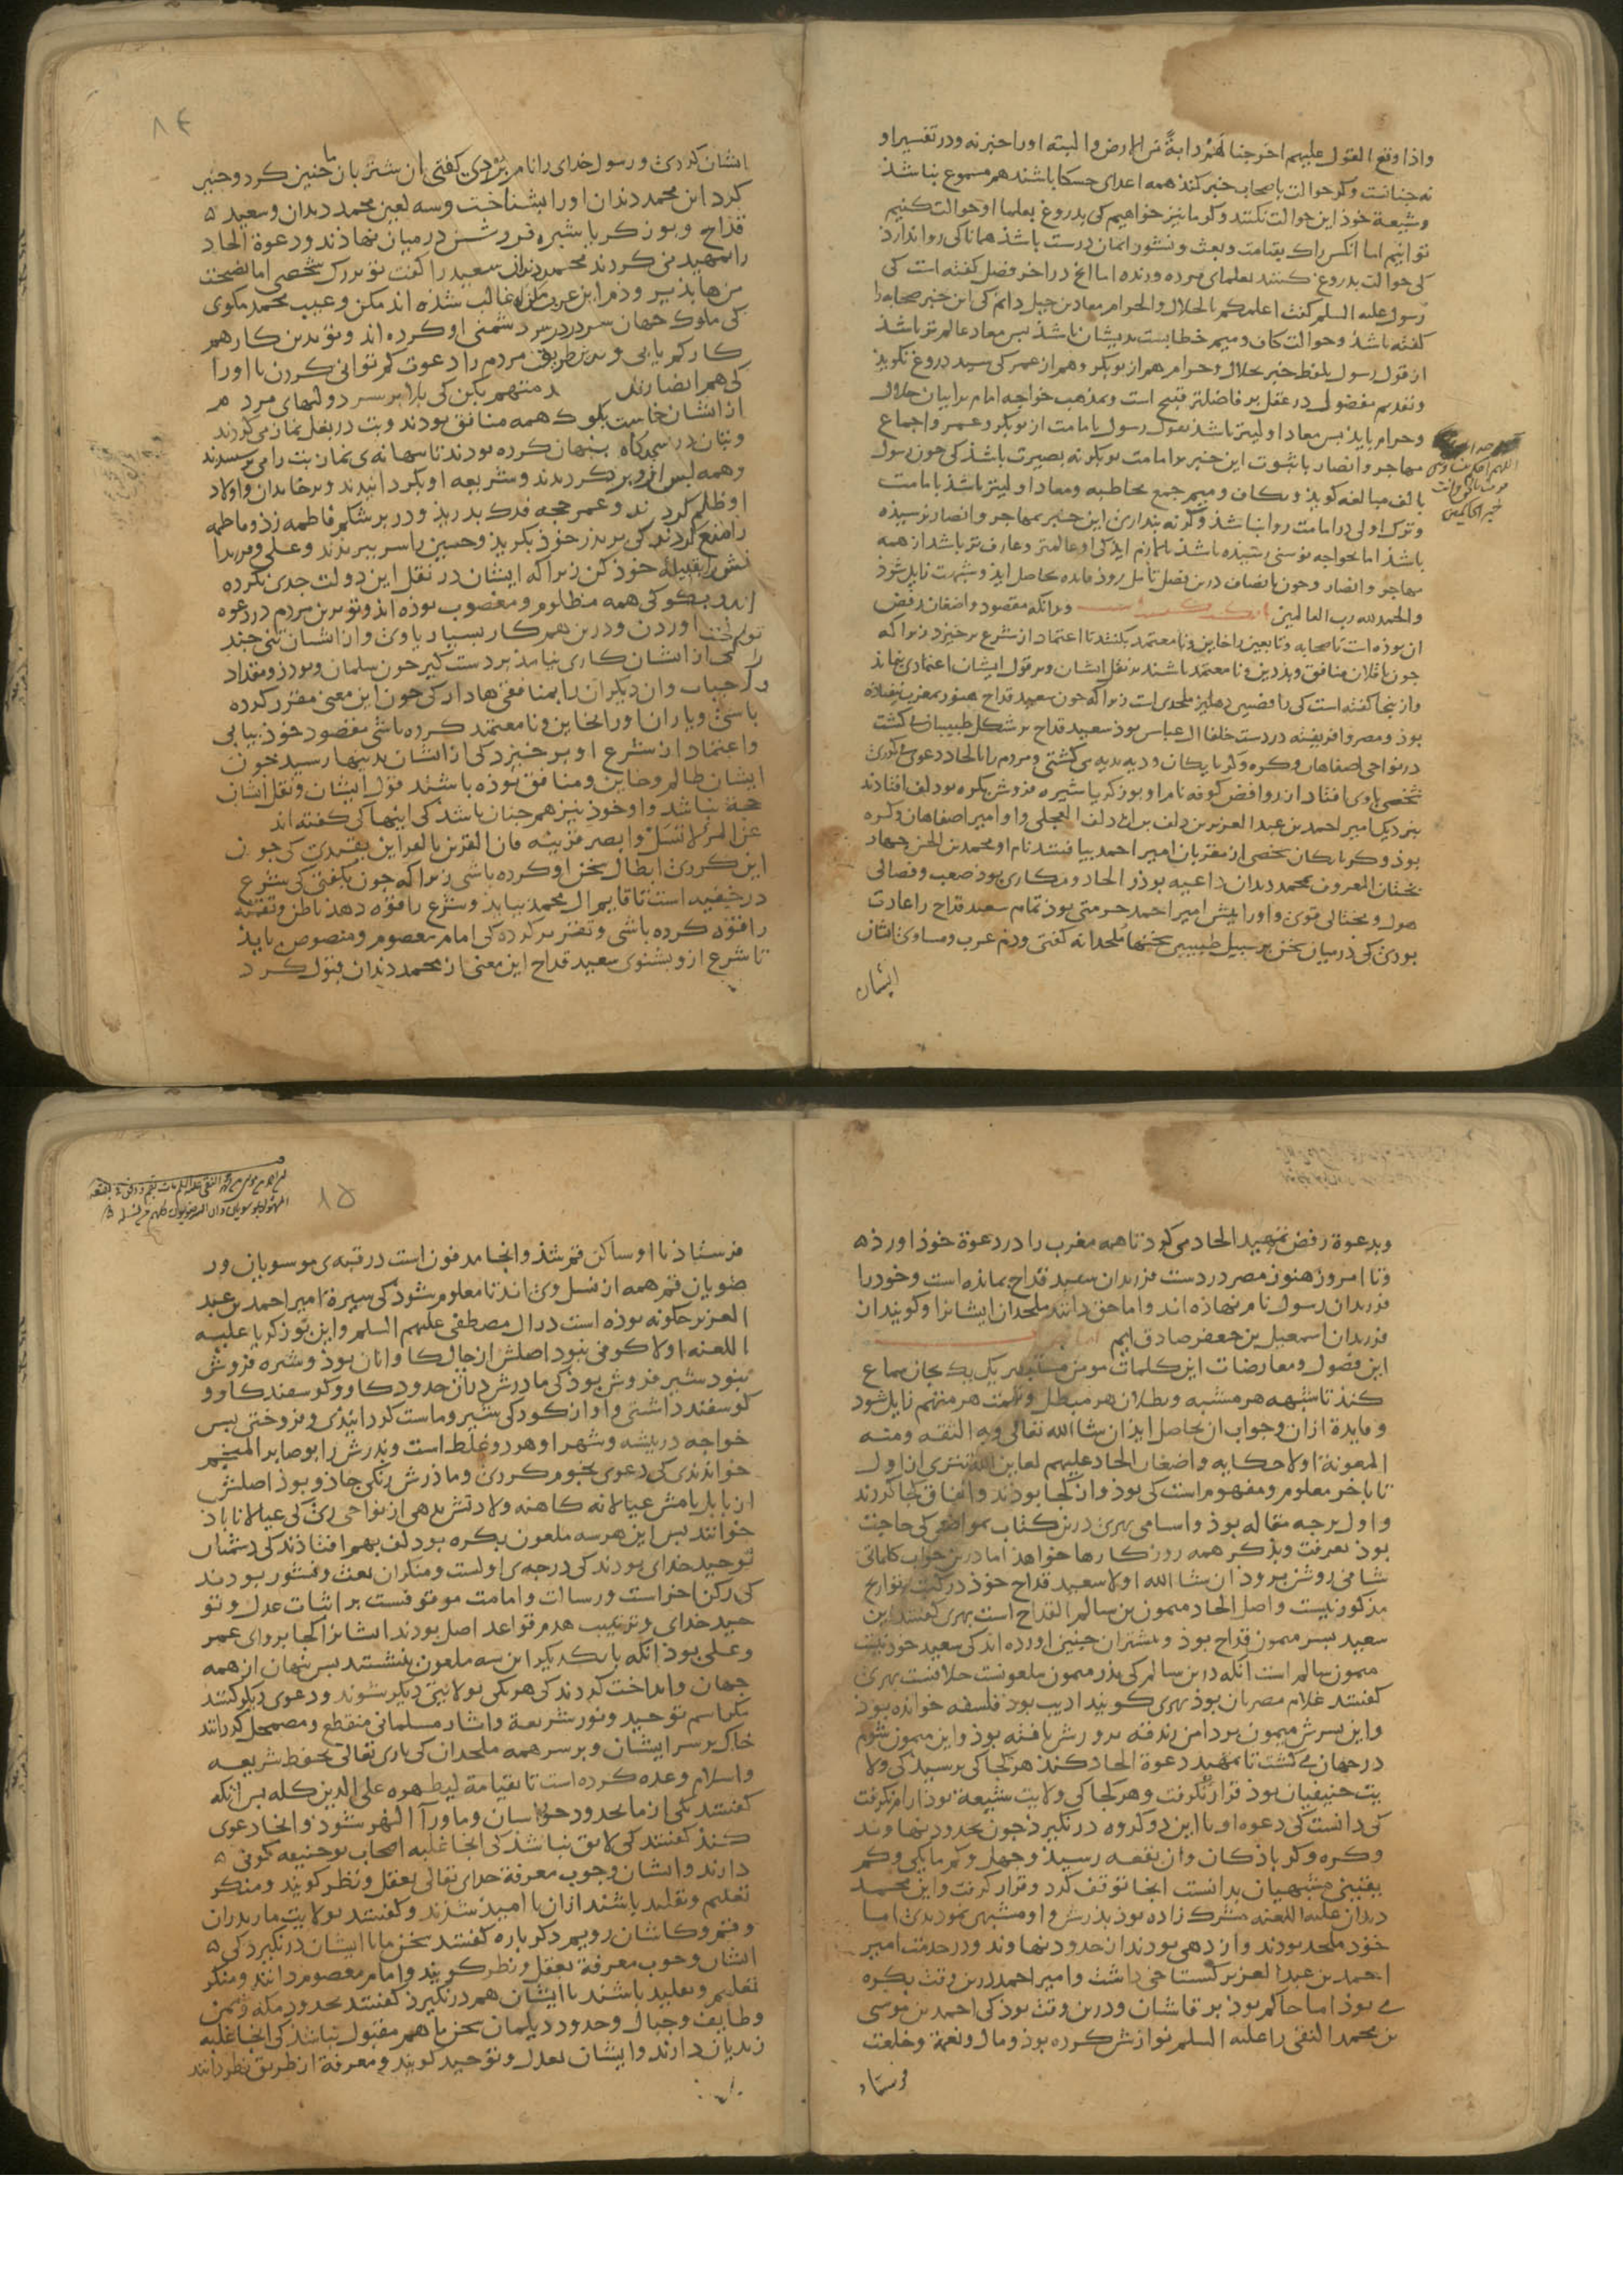 واذا وقع القول علیهم اخرجنا لهم دابة من الارض والبته اورا خبر نه ودر تفسیر او
نه چنانست وکر حوالت باصحاب خبر کند همه اعدای حسکا باشند هم مسموع نباشذ
وشیعة خوذ این حوالت نکنند وکر ما نیز خواهیم کی بدروغ بعلما او حوالت کنیم
توانیم اما انکس راک بقیامت وبعث ونشور ایمان درست باشذ همانا کی روا ندارذ
کی حوالت بدروغ کنند بعلمای مرده وزنده اما انج در اخر فصل کفته است کی
رسول علیه السلم کفت اعلمکم بالحلال والحرام معاد بن جبل دانم کی این خبر صحابه را
کفته باشذ وحوالت کاف ومیم خطابست بدیشان باشذ بس معاد عالمتر باشذ
از قول رسول بلفظ خبر بحلال وحرام هم از بوبکر وهم از عمر کی سید دروغ نکویذ
وتقدیم مفضول در عقل بر فاضلتر قبیح است وبمذهب خواجه امام برا بیان حلال
وحرام بایذ بس معاد اولیتر باشذ بقول رسول بامامت از بوبکر وعمر واجماع
مهاجر وانصار با ثبوت این خبر برامامت بوبکر نه بصیرت باشذ کی چون رسول
بالف مبالغه کویذ وبکاف ومیم جمع مخاطبه ومعاد اولیتر باشذ بامامت
وترک اولی در امامت روا نباشذ وکر نه بنداری این خبر بمهاجر وانصار نرسیذه
باشذ اما بخواجه نوسنی رسیذه باشذ یا لازم ایذ کی او عالمتر وعارفتر باشد از همه
مهاجر وانصار وچون بانصاف درین فصل تأمل روذ فایده بحاصل ایذ وشبهت زایل شوذ
والحمد لله رب العالمین وبدانکه مقصود واضعان رفض
ان بوذه است تا صحابه وتابعین را خاین ونامعتمد بکنند تا اعتماد از شرع برخیزد زیرا که
چون ناقلان منافق وبددین ونامعتمد باشند بر نقل ایشان وبر قول ایشان اعتمادی نماند
وازینجا کفته است کی رافضیی دهلیز ملحدی است زیرا که چون سعید قداح هنوز بمغرب نیفتاده
بوذ ومصر وافریقیه در دست خلفا ال عباس بوذ سعید قداح بر شکل طبیبان می کشت
در نواحی اصفاهان وکره وکربایکان ودیه بدیه می کشتی ومردم را بالحاد دعوی می کردی
شخصی باوی افتاد از روافض کوفه نام او بوزکریا شیره فروش بکره بودلف افتادند
بنزدیک امیر احمد بن عبد العزیز بن دلف بن ابی دلف العجلی واو امیر اصفاهان وکره
بوذ وکربایکان شخصی از مقربان امیر احمد بیافتند نام او محمد بن الحسن جهار
بختان المعروف بمحمد دندان داعیه بوذ در الحاد ومکاری بوذ صعب وفصالی
هول ومختالی قوی واورا پیش امیر احمد حرمتی بوذ تمام سعید قداح را عادت
بودی کی در میان سخن بر سبیل طبیبیی سخنها ملحدانه کفتی وذم عرب ومساوی ایشان
ایشان
۸۴
ایشان کردی ورسول خدای را نام بردی کفتی ان شتربان ما چنین کرد وچنین
کرد این محمد دندان اورا بشناخت وسه لعین محمد دندان وسعید
قداح وبوزکریا شیره فروش در میان نهاذند ودعوة الحاد
را تمهید می کردند محمد دندان سعید را کفت تو بزرک شخصی اما نصیحت
من بابذیر وذم این عرب مکن غالب شذه اند مکن وعیب محمد مکوی
کی ملوک جهان سر در سر دشمنی او کرده اند وتو بدین کار هم
کار کم یابی وبدین طریق مردم را دعوت کم توانی کردن با اورا
کی هم انصار متهم بکن کی یارا بر سر دولتهای مردم
از ایشان خاست بکوک همه منافق بودند وبت در بغل نماز می کردند
وبتان در سجدکاه پنهان کرده بودند تا ببهانه ی نماز بت را می پرستیدند
وهمه بس ازو برکردیدند وشریعه او بکردانیدند وبر خاندان واولاد
او ظلم کردند وعمر حجه فدک بدرید ودر بر شکم فاطمه زذ وفاطمه
را منع کردند کی بر بدر خوذ بکرید وحسین را سر ببریدند وعلی وفرزندا
نش را بقبیله خوذ کن زیرا که ایشان در نقل این دولت جدی نکرده
اند وبکو کی همه مظلوم ومغصوب بوذه اند وتو بدین مردم در دعوه
توانی آوردن ودرین هم کار بسیار یاوی واز ایشان تنی چند
را کی از ایشان کاری نیامذ بر دست کیر چون سلمان وبوذر ومقداد
وخباب وان دیکران را بمنافقی ها دار کی چون این معنی مقرر کرده
باشی ویاران اورا بخاین ونامعتمد کرده باشی مقصود خوذ بیابی
واعتماد از شرع او برخیزد کی از ایشان بدینها رسید چون
ایشان ظالم وخاین ومنافق بوذه باشند قول ایشان ونقل ایشان
حجة نباشد واو خوذ نیز همچنان باشد کی اینها کی کفته اند
عن المرء لا تسئل وابصر قرینه فان القرین بالقراین یقتدی کی چون
این کردی ابطال سخن او کرده باشی زیرا که چون بکفتی کی شرع
در خفیه است تا قایم ال محمد بیایذ وشرع را قوه دهد باطن وتقیه
را قوه کرده باشی وتقریر کرده کی امام معصوم ومنصوص می بایذ
تا شرع ازو بشنوی سعید قداح این معنی از محمد دندان قبول کرد
وبدعوة رفض تمهید الحاد می کرد تا همه مغرب را در دعوة خوذ اورذ
وتا امروز هنوز مصر در دست فرزندان سعید قداح بمانده است وخود را
فرزندان رسول نام نهاذه اند واما حق دانند ملحدان ایشانرا وکویند ان
فرزندان اسمعیل بن جعفر صادق ایم اما جواب
این فصول ومعارضات این کلمات مومن مستبصر یک یک بجان سماع
کند تا شبهه هر مشبه وبطلان هر مبطل وتهمت هر متهم زایل شود
وفایدة ازان وجواب ان بحاصل ایذ ان شا الله تعالی وبه الثقه ومنه
المعونة اولا حکایه واضعان الحاد علیهم لعاین الله تتری از اول
تا باخر معلوم ومفهوم است کی بوذ واز کجا بودند واتفاق کجا کردند
واول بر چه مقاله بوذ واسامی بهری درین کتاب بمواضعی کی حاجت
بوذ بعرفت وبذکر همه روزکارها خواهذ اما درین جواب کلماتی
شافی روشن برود ان شا الله اولا سعید قداح خوذ در کتب تواریخ
مذکور نیست واصل الحاد میمون بن سالم القداح است بهری کفتند این
سعید بسر میمون قداح بوذ وبیشتران چنین اورده اند کی سعید خود نیست
میمون سالم است انکه در بن سالم کی بذر میمون ملعونست خلافست بهری
کفتند غلام مصریان بوذ بهری کویند ادیب بوذ فلسفه خوانده بوذ
واین بسرش میمون بر دامن زندقه برورش یافته بوذ واین میمون شوم
در جهان می کشت تا تمهید دعوة الحاد کند هر کجا کی برسید کی ولا
یت حنیفیان بوذ قرار نکرفت وهر کجا کی ولایت شیعة بوذ ارام نکرفت
کی دانست کی دعوه او با این دو کروه در نکیرذ چون بحدود نهاوند
وکره وکرباذکان وان بقعه رسید وجهل وکم مایکی وکم
یقینی مشبهیان بدانست انجا توقف کرد وقرار کرفت واین محمد
دندان علیه اللعنه مشرک زاده بوذ بذرش واو مشبهی نمودندی اما
خوذ ملحد بودند واز دهی بودند از حدود نهاوند ودر خدمت امیر
احمد بن عبد العزیز کستاخی داشت وامیر احمد درین وقت بکره
می بوذ اما حاکم بوذ بر قاشان ودرین وقت بوذ کی احمد بن موسی
بن محمد التقی را علیه السلم نوازش کرده بوذ ومال ونعمة وخلعت
فرستاد
۸۵
فرستاذ تا او ساکن قم شذ وانجا مدفون است در قبه ی موسویان ور
ضویان قم همه از نسل وی اند تا معلوم شود کی سیرة امیر احمد بن عبد
العزیز چکونه بوذه است در ال مصطفی علیهم السلم واین بوزکریا علیه
اللعنه اولا کوفی نبود اصلش از چال کاواتان بوذ وشیره فروش
نبود شیر فروش بوذ کی مادرش دران حدود کاو وکوسفند کاو و
کوسفند داشتی واو از کودکی شیر وماست کردانیدی وفروختی بس
خواجه در بیشه وشهر او هر دو غلط است وبدرش را بوصابر المنجم
خواندندی کی دعوی نجوم کردی وماذرش زنکی جاذو بوذ اصلش
از بابل نامش عیالانه کاهنه ولادتش بدهی از نواحی ری کی عیالاناباذ
خوانند بس این هر سه ملعون بکره بودلف بهم افتاذند کی دشمنان
توحید خدای بودند کی درجه ی اولست ومنکران بعث ونشور بودند
کی رکن اخر است ورسالت وامامت موقوفست بر اثبات عدل وتو
حید خدای وترتیب هدم قواعد اصل بودند ایشانرا کجا بروای عمر
وعلی بوذ انکه با یکدیکر این سه ملعون بنشستند بس پنهان از همه
جهان واندیشه کردند کی هر یکی بولایتی دیکر شوند ودعوی دیکر کنند
مکر اسم توحید ونور شریعة واثار مسلمانی منقطع ومضمحل کردانند
خاک بر سر ایشان وبر سر همه ملحدان کی باری تعالی بحفظ شریعه
واسلام وعده کرده است تا بقیامة لیظهره علی الدین کله بس انکه
کفتند یکی از ما بحدود خراسان وماورآ النهر شود وانجا دعوی
کند کفتند کی لایق نباشذ کی انجا غلبه اصحاب بوحنیفه کوفی
دارند وایشان وجوب معرفة خدای تعالی بعقل ونظر کویند ومنکر
تعلیم وتقلید باشند ازان نا امید شدند وکفتند بولایت مازندران
وقم وکاشان رویم دکر باره کفتند سخن ما با ایشان در نکیرد کی
ایشان وجوب معرفة بعقل ونظر کویند وامام معصوم دانند ومنکر
تعلیم وتقلید باشند با ایشان هم در نکیرذ کفتند بحدود مکه ویمن
وطایف وجبال وحدود دیلمان سخن ما هم مقبول نباشذ کی انجا غلبه
زیدیان دارند وایشان بعدل وتوحید کویند ومعرفة از طریق نظر دانند